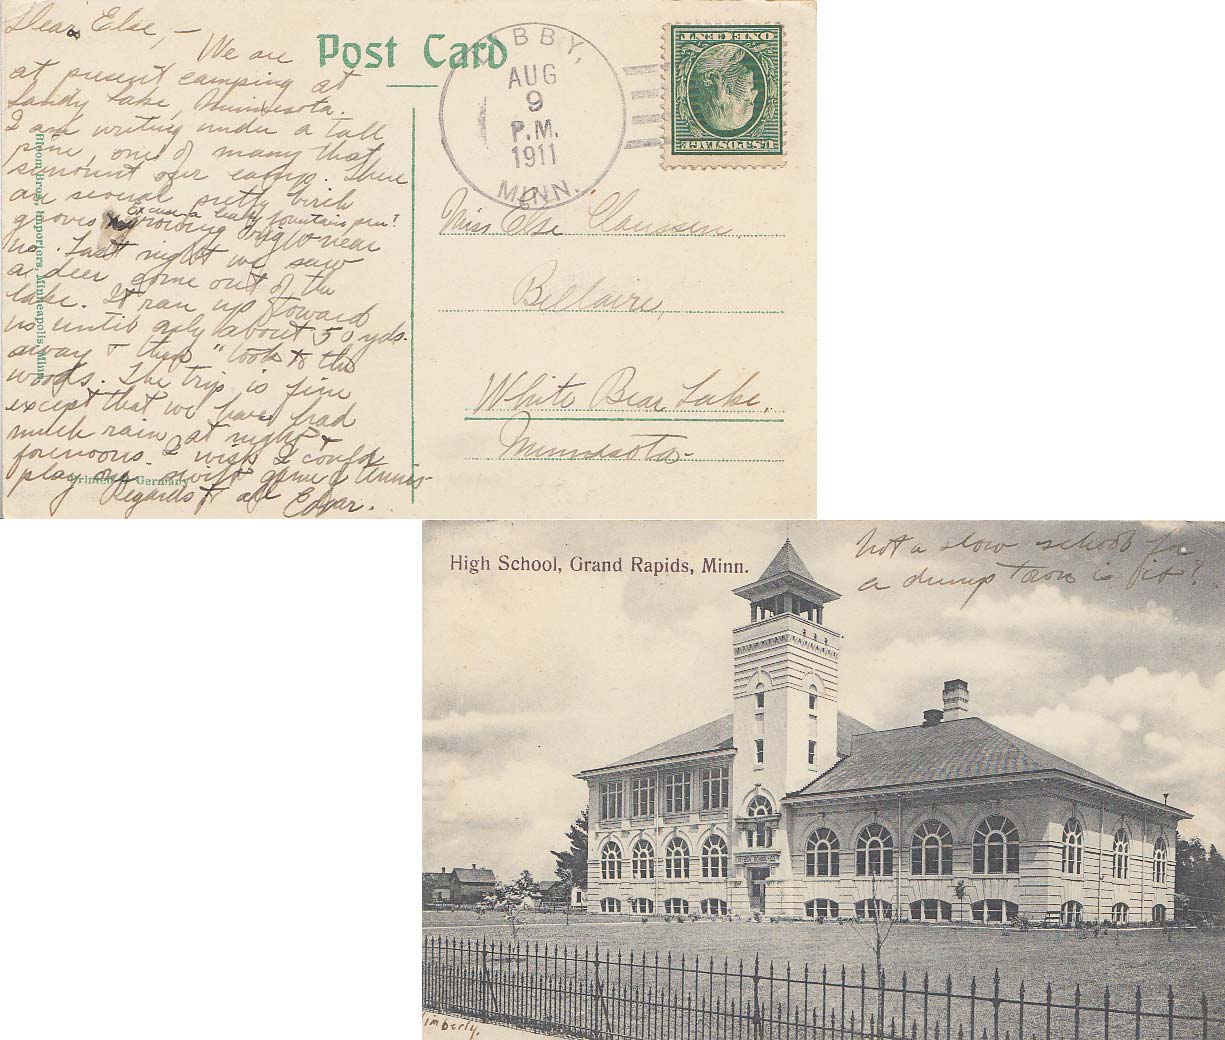 Dear Else, —
We are
at present camping at
Sandy Lake, Minnesota.
I am writing under a tall
pine, one of many that
surround our camp. There
are several pretty birch
Excuse a leaky fountain pen?
groves growing right near
us. Last night we saw
a deer come out of the
lake. It ran up toward
us until only about 50 yds.
away & then "took to the
woods. The trip is fine
except that we have had
much rain at night &
forenoons. I wish I could
play one swift game of tennis.
Regards to all Edgar.
Bloom Bros. Importers, Minneapolis, Minn.
Printed in Germany
Post Card
LIBBY,
AUG
9
P.M.
1911
MINN.
U.S. POSTAGE
ONE CENT
Miss Else Claussen,
Bellaire,
White Bear Lake,
Minnesota.
High School, Grand Rapids, Minn.
Not a slow school for
a dump town is it?
Kimberly.